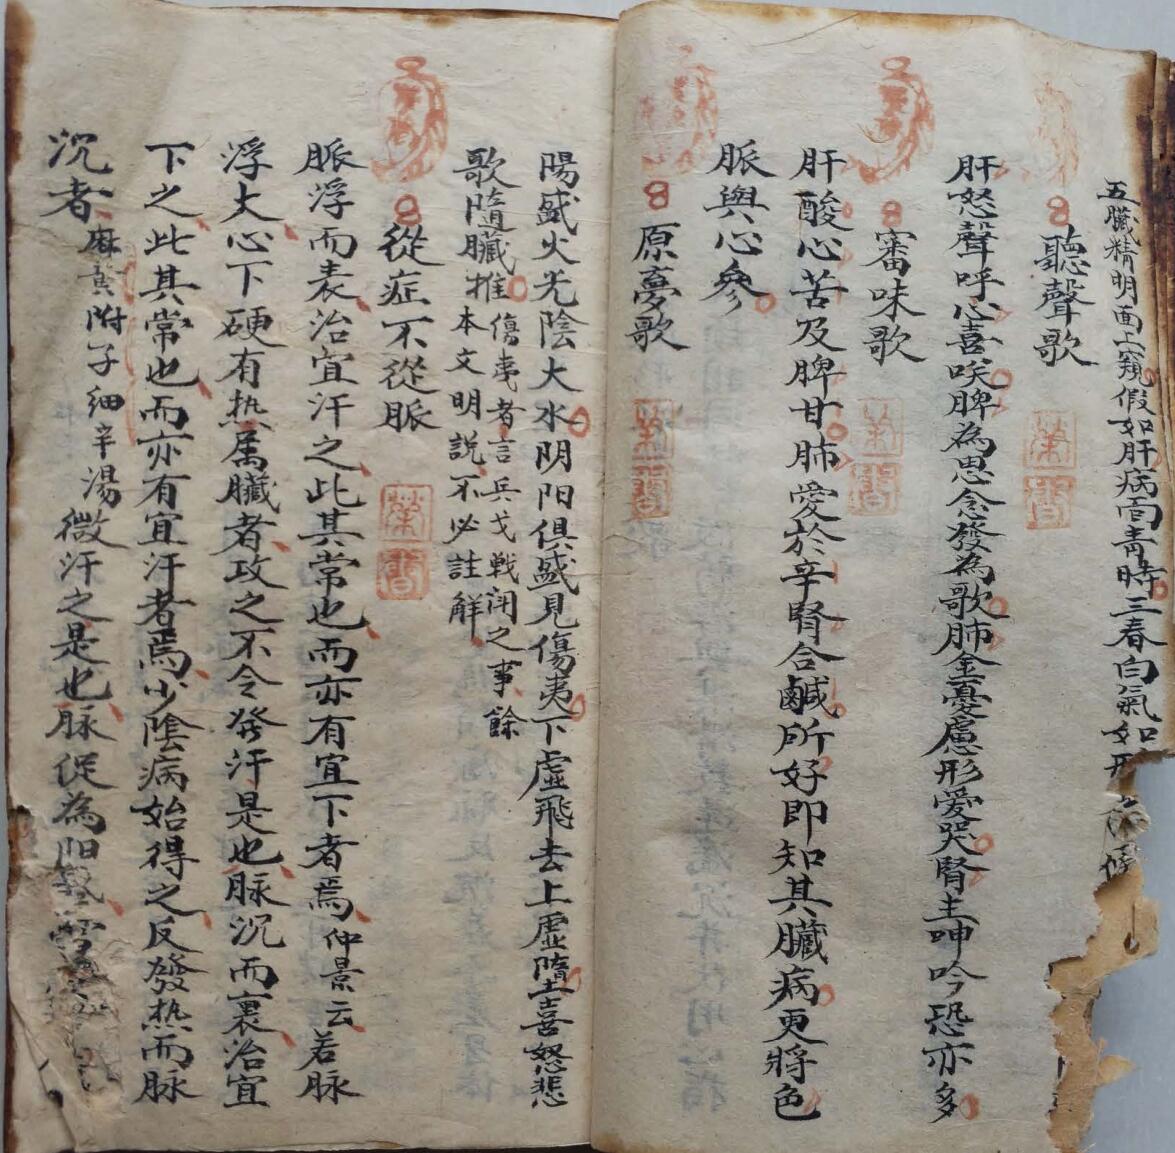 五臟精明面上窺假如肝病面青時三春白氣如形
聽聲歌
肝怒聲呼心喜咲脾為思念發為歌肺金憂慮形愛哭腎主呻吟恐亦多
審味歌
肝酸心苦及脾甘肺愛於辛腎合鹹所好即知其臟病更將色
脈與心參
原夢歌
陽盛火光陰大水阴阳俱盛見傷夷下虛飛去上虛墮喜怒悲
歌隨臟推
傷夷者言兵戈戰闭之事餘
本文明説不必註解
從症不從脈
脈浮而表治宜汗之此其常也而亦有宜下者焉仲景云若脈
浮大心下硬有热属臟者攻之不令發汗是也脈沉而裏治宜
下之此其常也而亦有宜汗者焉少陰病始得之反發热而脈
沉者麻黄附子細辛湯微汗之是也脈促為阳